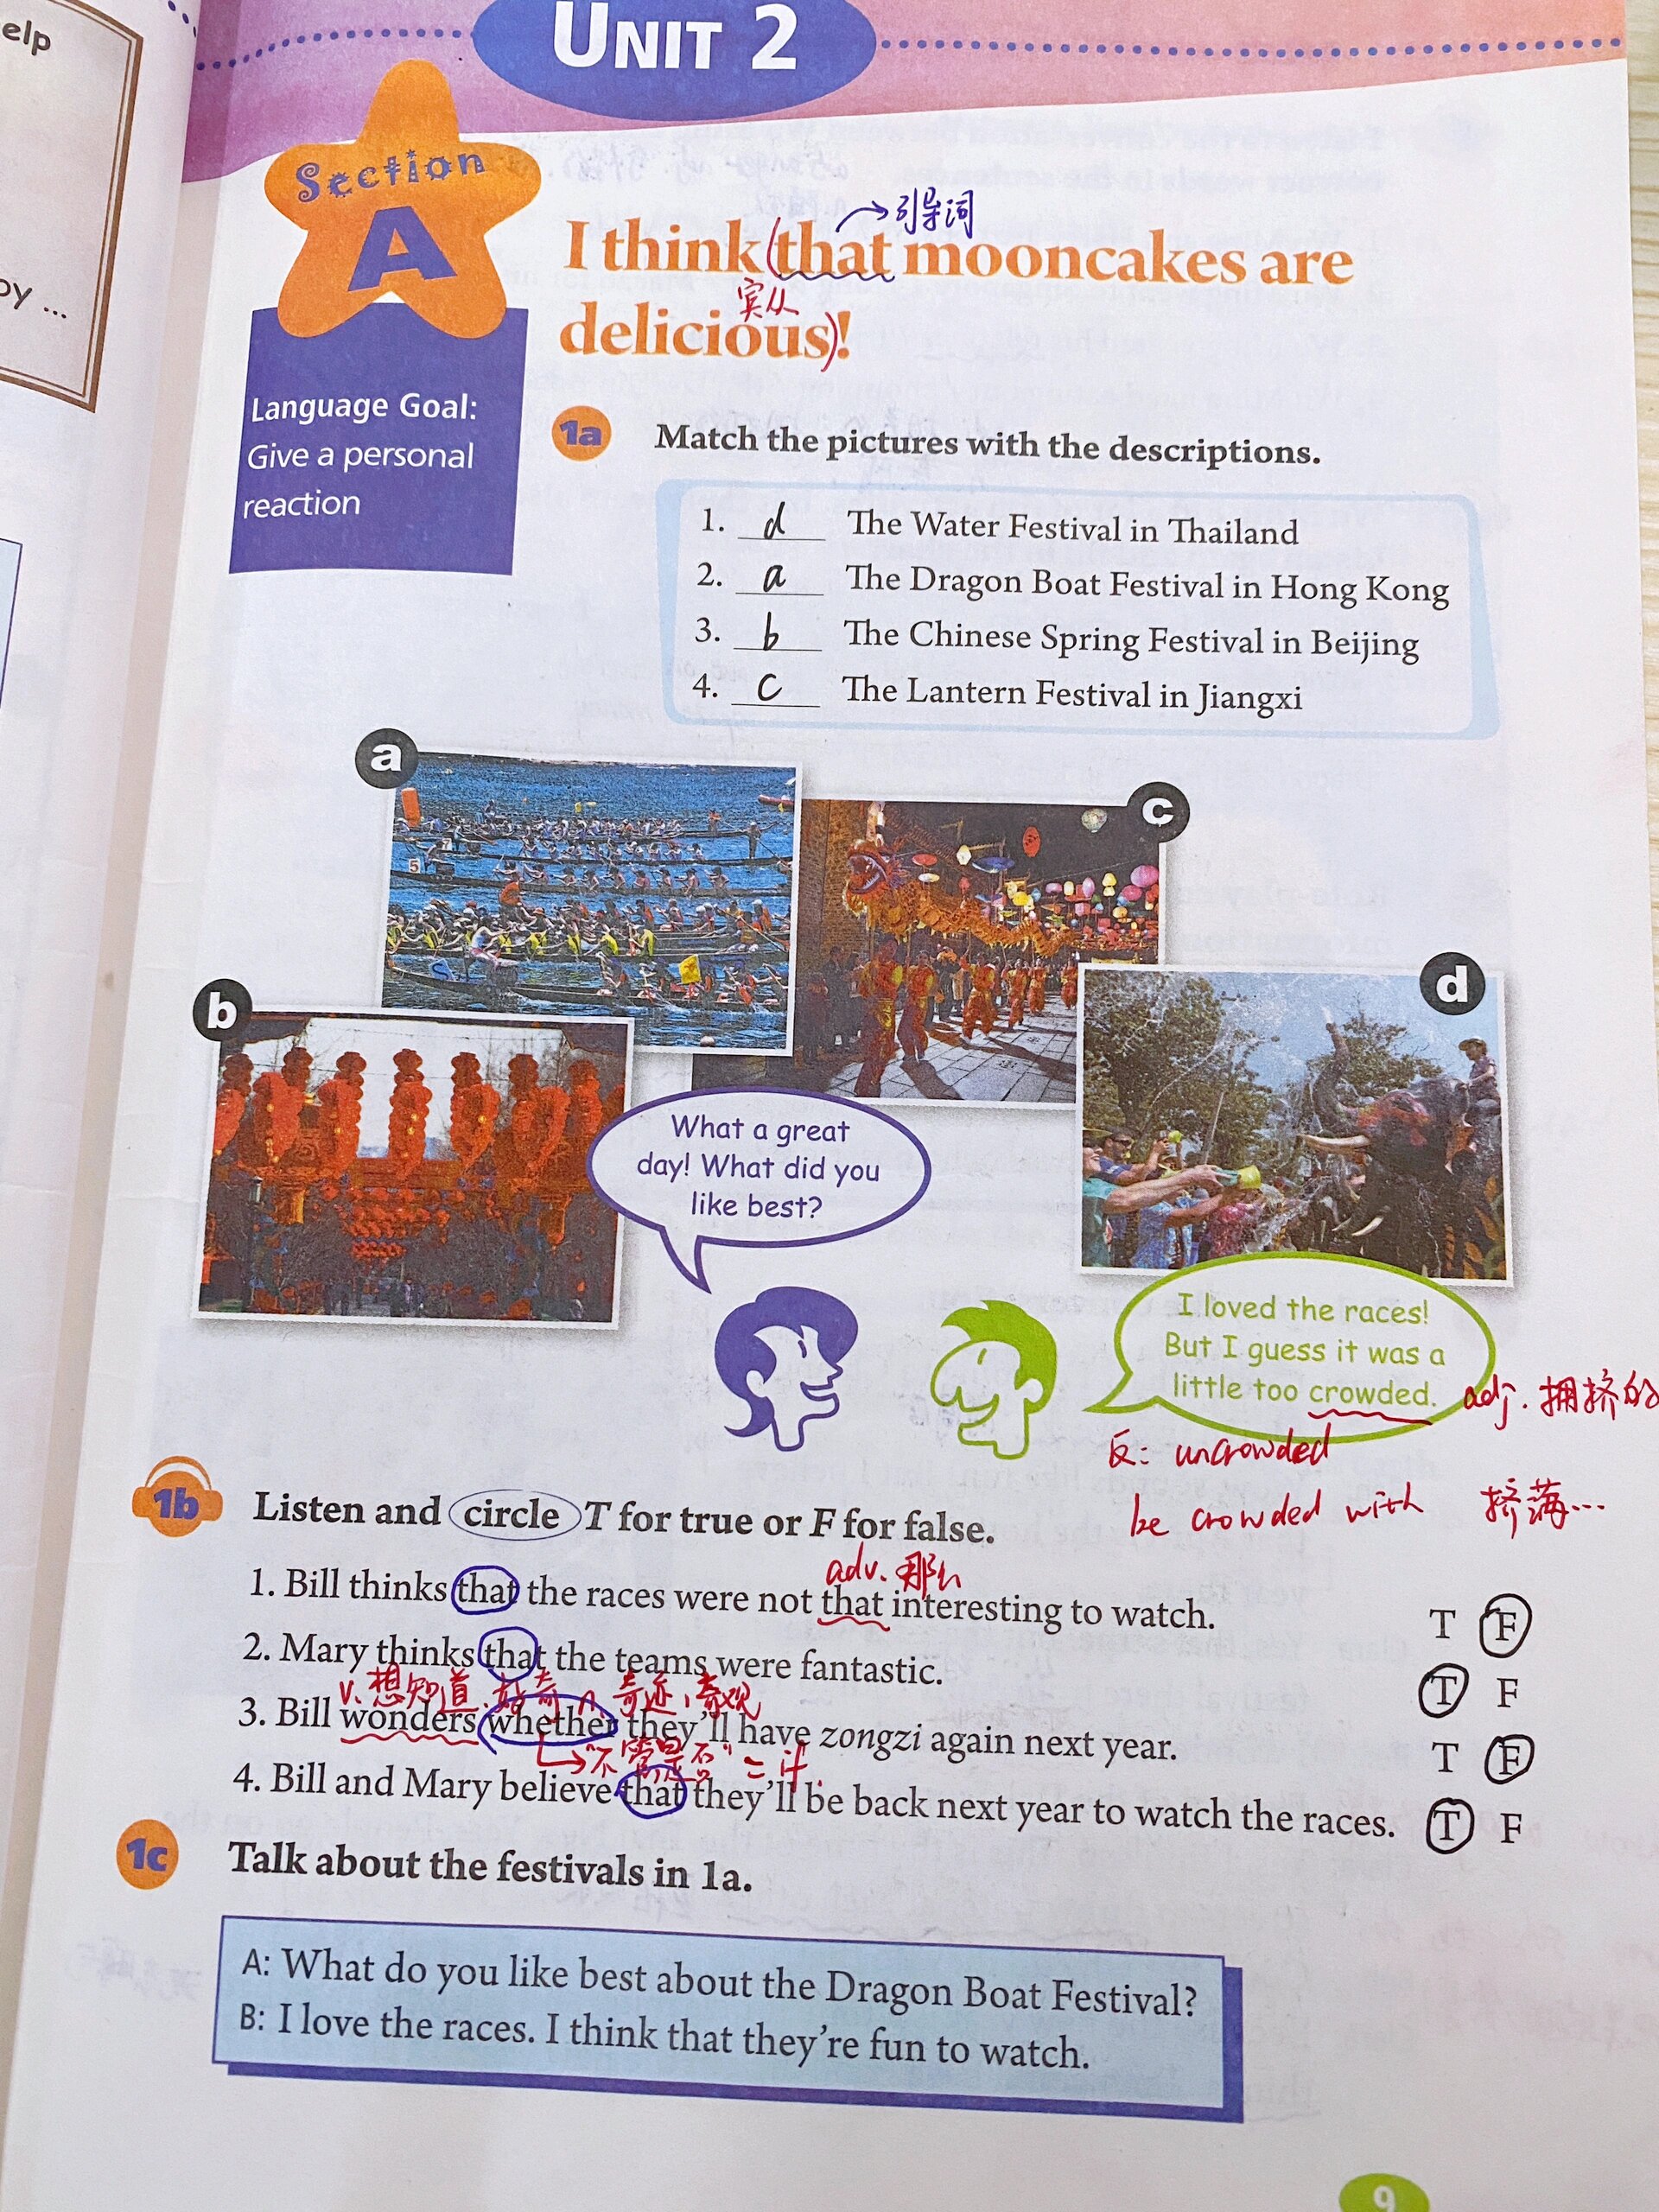 elp
by ...
UNIT 2
Section
A
Language Goal:
Give a personal
reaction
引导词
I think (that mooncakes are
宾从
delicious)!
1a Match the pictures with the descriptions.
1. d The Water Festival in Thailand
2. a The Dragon Boat Festival in Hong Kong
3. b The Chinese Spring Festival in Beijing
4. c The Lantern Festival in Jiangxi
a
c
5
b
d
What a great
day! What did you
like best?
I loved the races!
But I guess it was a
little too crowded.
adj. 拥挤的
反: uncrowded
be crowded with 挤满...
1b Listen and circle T for true or F for false.
adv. 那么
1. Bill thinks that the races were not that interesting to watch. T F
2. Mary thinks that the teams were fantastic. T F
v. 想知道, 好奇 n. 奇迹, 奇观
3. Bill wonders whether they'll have zongzi again next year. T F
"不管是否" = if.
4. Bill and Mary believe that they'll be back next year to watch the races. T F
1c Talk about the festivals in 1a.
A: What do you like best about the Dragon Boat Festival?
B: I love the races. I think that they're fun to watch.
9